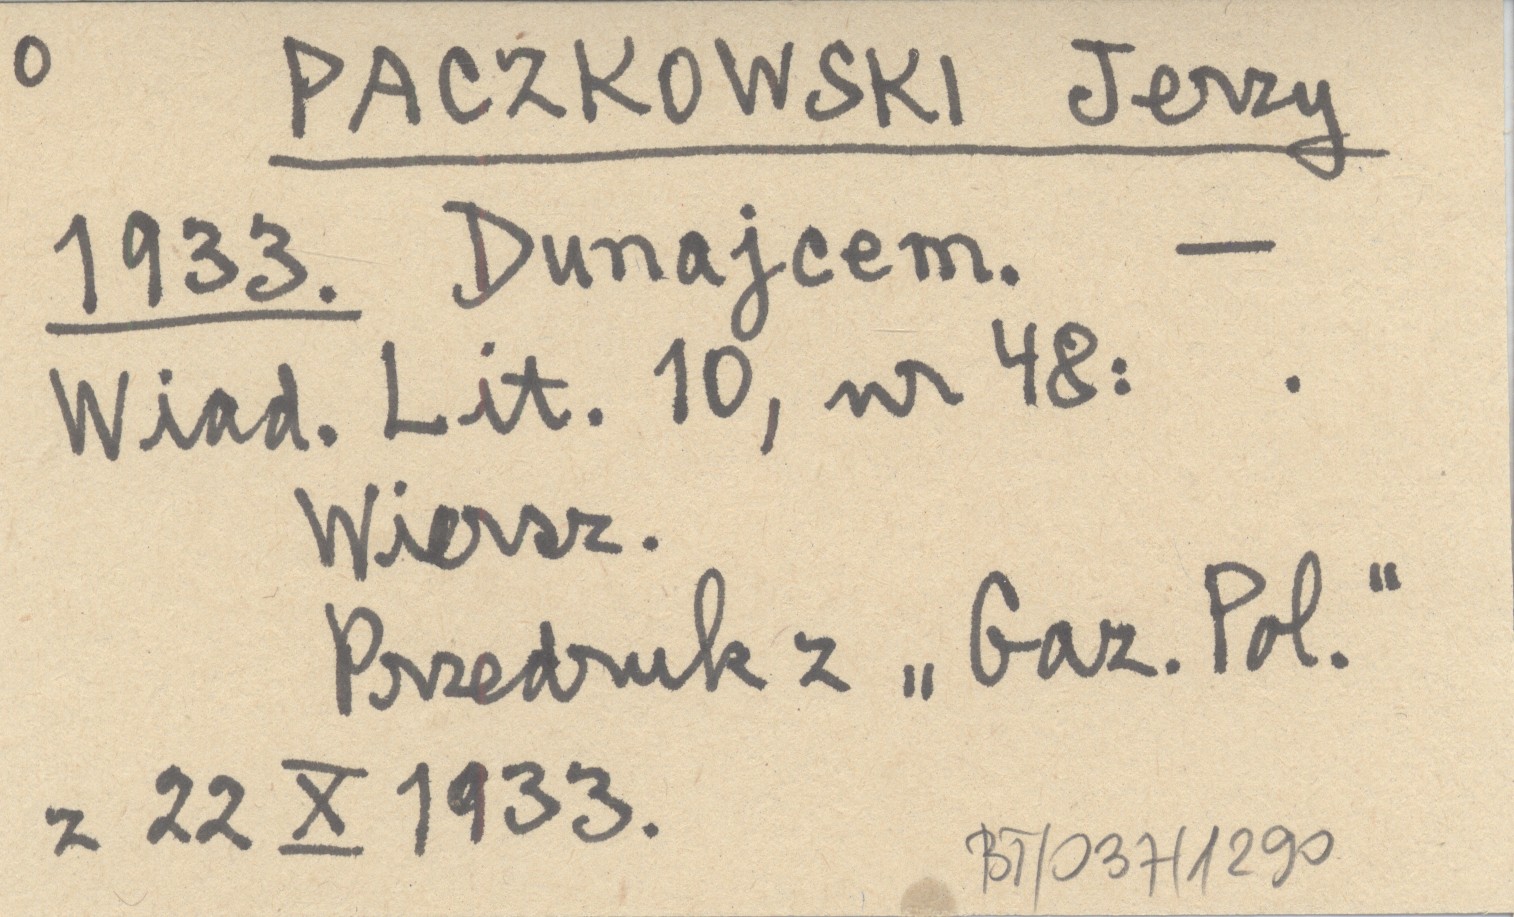 o PACZKOWSKI Jerzy
1933. Dunajcem. —
Wiad. Lit. 10, nr 48: .
Wiersz.
Przedruk z „Gaz. Pol."
z 22 X 1933.
BT/037/1290